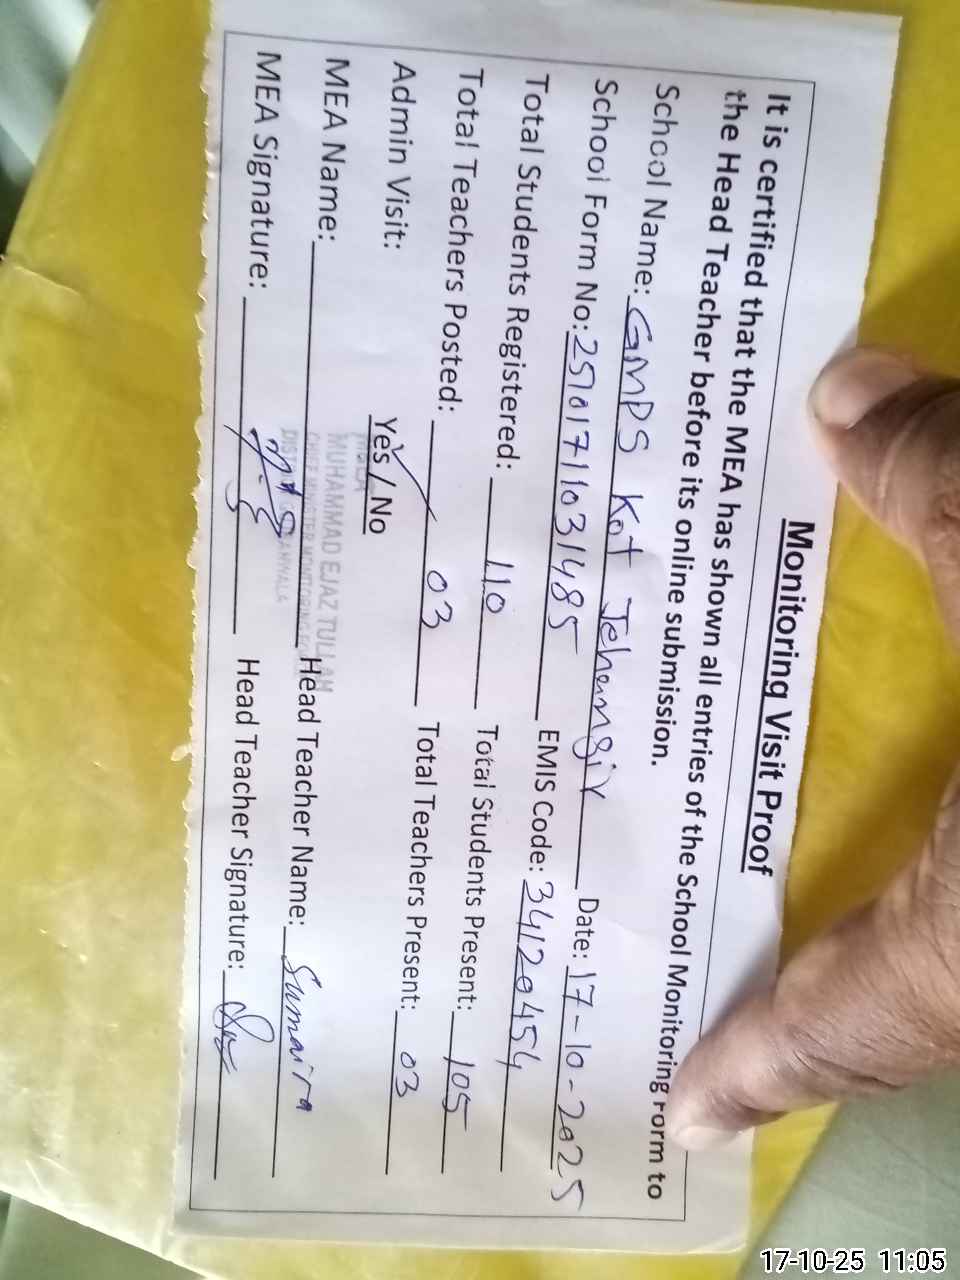 Monitoring Visit Proof
It is certified that the MEA has shown all entries of the School Monitoring Form to
the Head Teacher before its online submission.
School Name: GMPS Kot Jehangir Date: 17-10-2025
School Form No: 25101711031485 EMIS Code: 34120454
Total Students Registered: 110 Total Students Present: 105
Total Teachers Posted: 03 Total Teachers Present: 03
Admin Visit: Yes / No
MUHAMMAD EJAZ TULLAH
MEA Name: Head Teacher Name: Sumaira
MEA Signature: Head Teacher Signature:
17-10-25 11:05